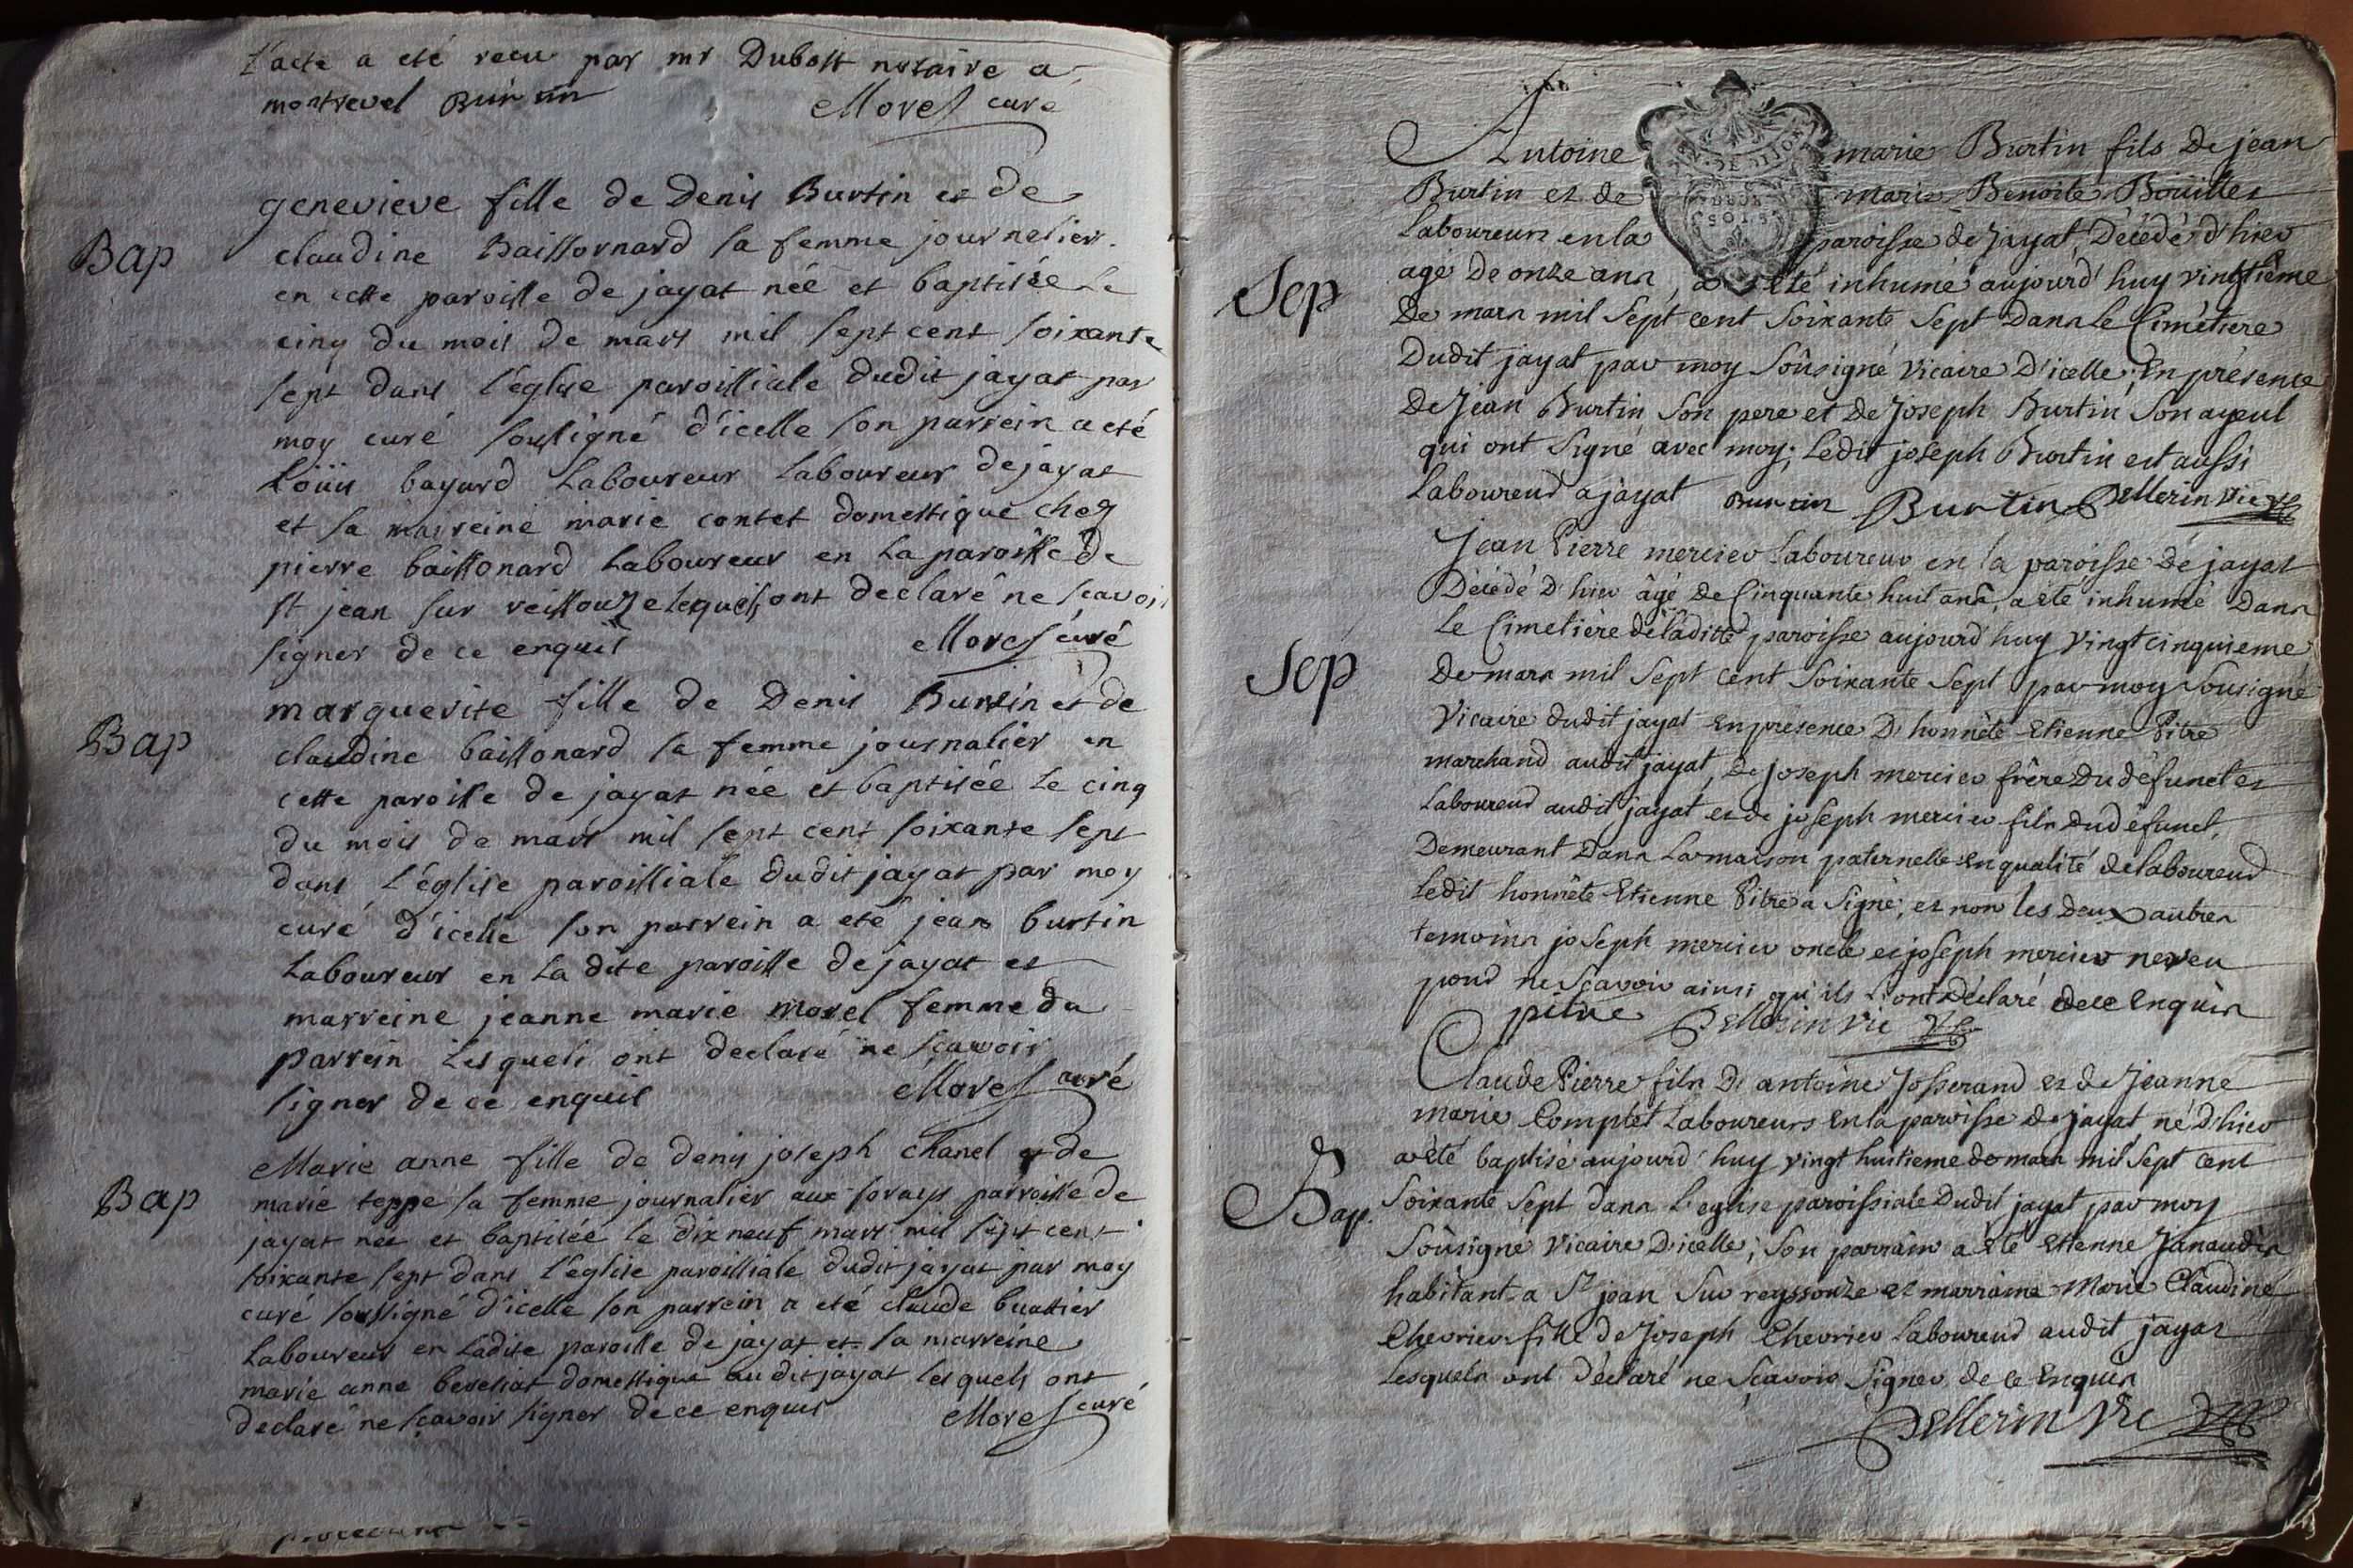 L'acte a eté recu par mr Dubost notaire a
montrevel Burtin Morel curé
Bap
genevieve fille de Denis Burtin et de
claudine Baissonard sa femme journalier
en cette paroisse de jayat née et baptisée le
cinq du mois de mars mil sept cent soixante
sept dans l'église paroissiale dudit jayat par
moy curé soussigné d'icelle son parrein a eté
Loüis bayard Laboureur Laboureur de jayat
et sa maireine marie contet domestique chez
pierre baissonard Laboureur en la paroisse de
st jean sur reissouze lequels ont declaré ne scavoir
signer de ce enquis Morel curé
Bap
marguerite fille de Denis Burtin et de
claudine baissonard sa femme journalier en
cette paroisse de jayat née et baptisée le cinq
du mois de mars mil sept cent soixante sept
dans l'église paroissiale dudit jayat par moy
curé d'icelle son parrein a eté jean burtin
Laboureur en la dite paroisse de jayat et
marreine jeanne marie morel femme du
parrein Lesquels ont declaré ne scavoir
signer de ce enquis Morel curé
Bap
Marie anne fille de denis joseph chanel et de
marie teppe sa femme journalier aux sorays parroisse de
jayat née et baptisée le dix neuf mars mil sept cent
soixante sept dans l'église paroissiale dudit jayat par moy
curé soussigné d'icelle son parrein a eté claude buattier
Laboureur en Ladite paroisse de jayat et sa marreine
marie anne bereziat domestique audit jayat lesquels ont
declaré ne sçavoir signer de ce enquis Morel curé
Sep
Antoine marie Burtin fils de jean
Burtin et de marie Benoite Boüillet
Laboureurs en la paroisse de jayat, Décédé d'hier
agé de onze ans, a été inhumé aujourd'huy vingtième
De mars mil Sept cent Soixante Sept Dans Le Cimétiere
Dudit jayat par moy Soûsigné Vicaire D'icelle; En présence
De Jean Burtin Son pere et de Joseph Burtin Son ayeul
qui ont Signé avec moy; Ledit joseph Burtin est aussi
Laboureur a jayat Burtin Burtin Pellerin Vic
Sep
Jean Pierre mercier Laboureur en la paroisse de jayat
Décédé D'hier âgé de Cinquante huit ans, a été inhumé Dans
Le Cimetière de ladite paroisse aujourd'huy vingt cinquieme
de mars mil Sept cent Soixante Sept par moy Sousigné
Vicaire dudit jayat En présence D'honnête Etienne Pitre
marchand audit jayat, de Joseph mercier frère Du défunct et
Laboureur audit jayat et de joseph mercier fils du défunct,
Demeurant Dans La maison paternelle En qualité de laboureur
Ledit honnête Etienne Pitre a Signé, et non les Deux autres
temoins joseph mercier oncle et joseph mercier neveu
pour ne Sçavoir ainsi qu'ils L'ont Déclaré de ce Enquis
pitre Pellerin Vic
Bap.
Claude Pierre fils D'antoine Josserand et de Jeanne
marie Comptet Laboureurs En la paroisse de jayat né D'hier
a été baptisé aujourd'huy vingt huitieme de mars mil Sept cent
Soixante Sept dans L'eglise paroissiale Dudit jayat par moy
Soûsigné Vicaire D'icelle; Son parrain a été Etienne Janaudin
habitant a St jean Sur reyssouze et marraine Marie Claudine
Chevrier fille de Joseph Chevrier Laboureur audit jayat
Lesquels ont Déclaré ne Sçavoir Signer de ce Enquis
Pellerin Vic